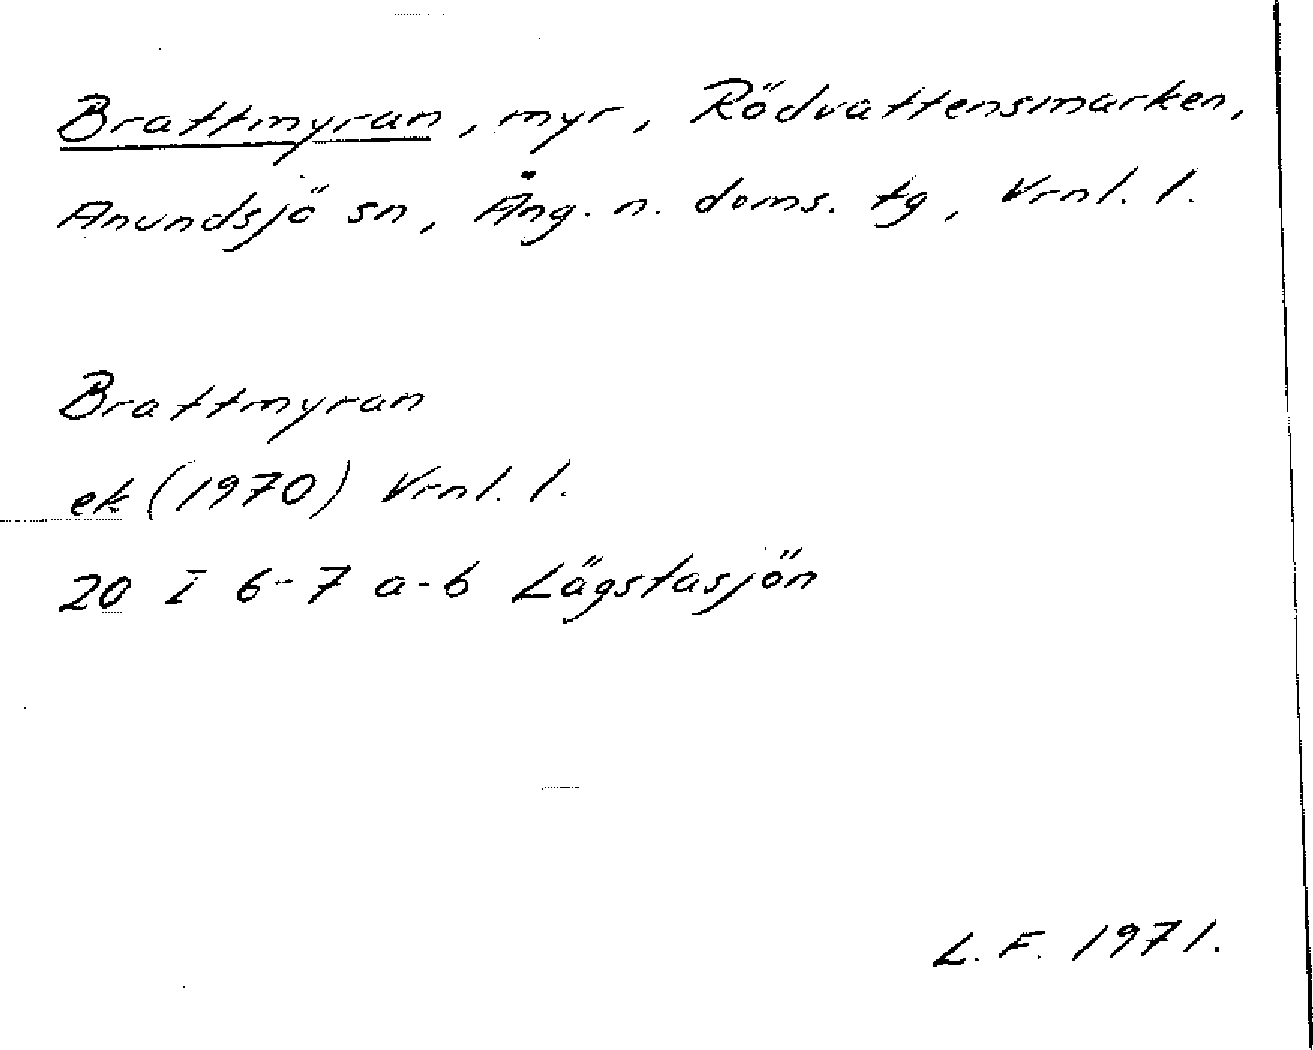 Brattmyran, myr, Rödvattensmarken,
Anundsjö sn, Ång. n. doms. tg, Vrnl. l.
Brattmyran
ek (1970) Vrnl. l.
20 I 6-7 a-b Lägstasjön
L. F. 1971.